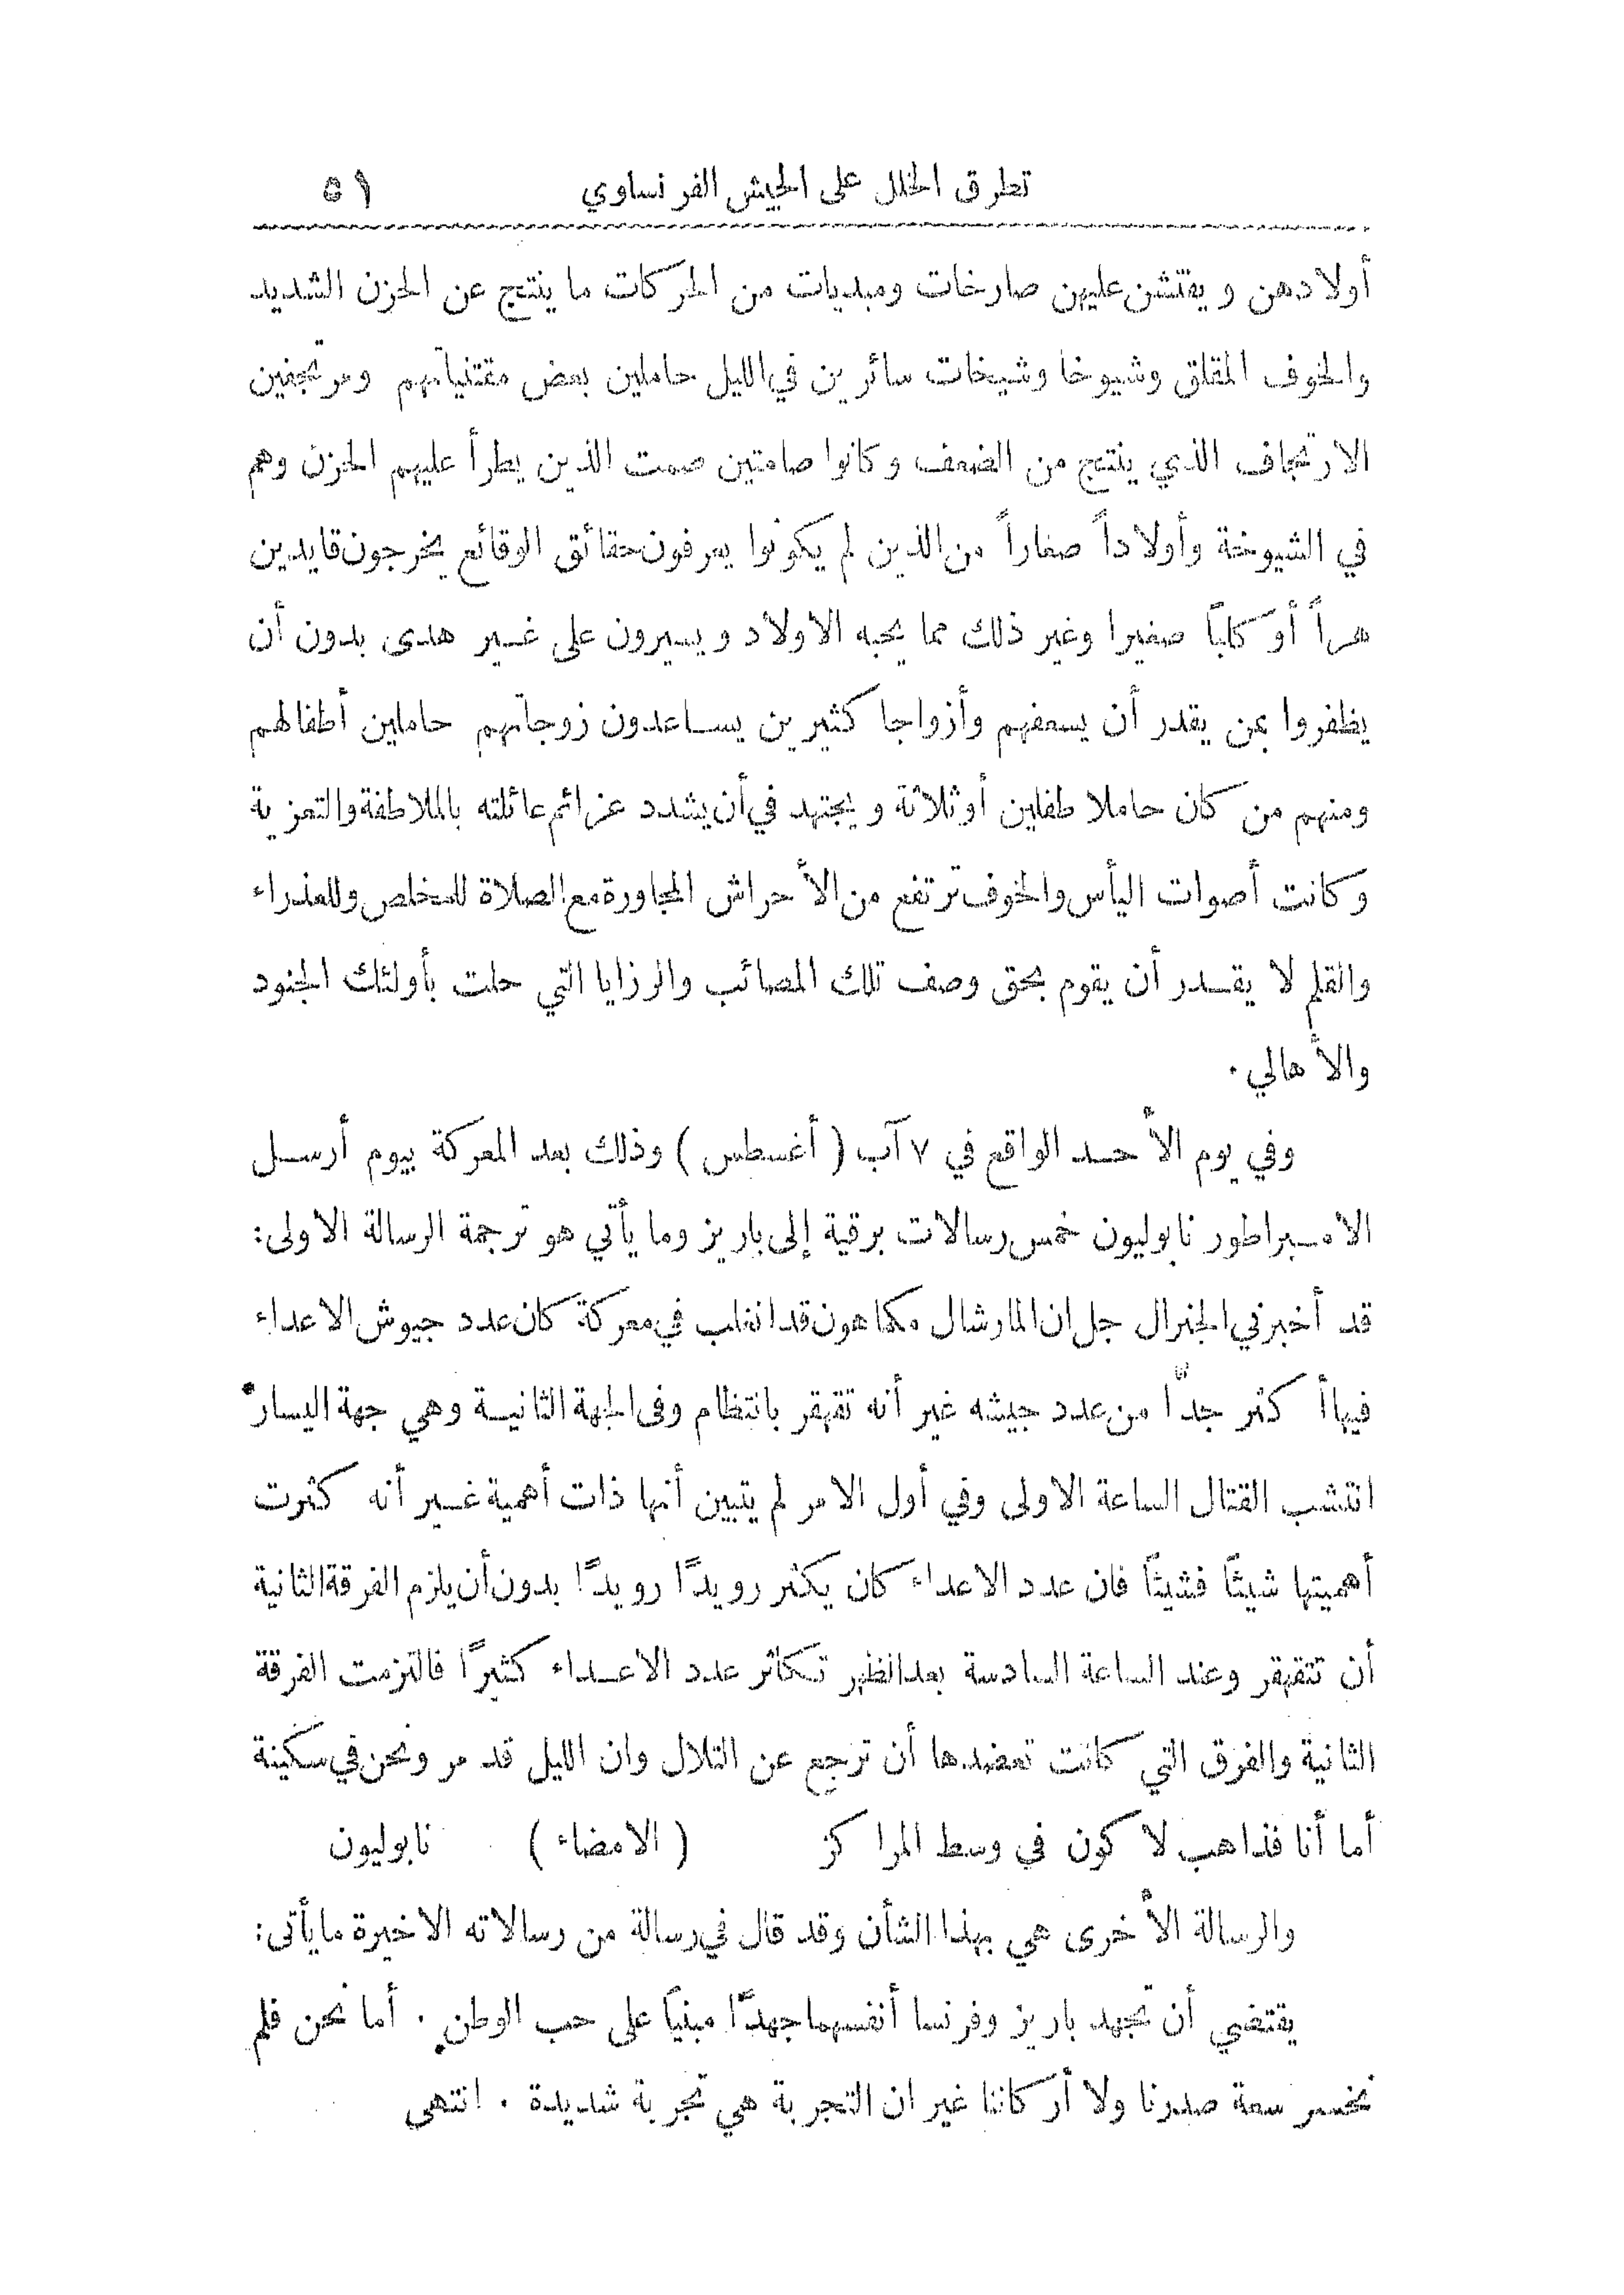 تطرق الخلل على الجيش الفرنساوي ٥١
أولادهن ويفتشن عليهن صارخات ومبديات من الحركات ما ينتج عن الحزن الشديد
والخوف المقلق وشيوخا وشيخات سائرين في الليل حاملين بعض مقتنياتهم ومرتجفين
الارتجاف الذي ينتج من الضعف وكانوا صامتين صمت الذين يطرأ عليهم الحزن وهم
في الشيوخة وأولاداً صغاراً من الذين لم يكونوا يعرفون حقائق الوقائع يخرجون قايدين
هراً أو كلباً صغيرا وغير ذلك مما يحبه الاولاد ويسيرون على غير هدى بدون أن
يظفروا بمن يقدر أن يسعفهم وأزواجا كثيرين يساعدون زوجاتهم حاملين أطفالهم
ومنهم من كان حاملا طفلين أو ثلاثة ويجتهد في أن يشدد عزائم عائلته بالملاطفة والتعزية
وكانت أصوات اليأس والخوف ترتفع من الأحراش المجاورة مع الصلاة للمخلص وللعذراء
والقلم لا يقدر أن يقوم بحق وصف تلك المصائب والرزايا التي حلت بأولئك الجنود
والأهالي .
وفي يوم الأحد الواقع في ٧ آب ( أغسطس ) وذلك بعد المعركة بيوم أرسل
الامبراطور نابوليون خمس رسالات برقية إلى باريز وما يأتي هو ترجمة الرسالة الاولى:
قد أخبرني الجنرال جل ان المارشال مكماهون قد انغلب في معركة كان عدد جيوش الاعداء
فيها أكثر جدّاً من عدد جيشه غير أنه تقهقر بانتظام وفى الجهة الثانية وهي جهة اليسار
انتشب القتال الساعة الاولى وفي أول الامر لم يتبين أنها ذات أهمية غير أنه كثرت
أهميتها شيئًا فشيئًا فان عدد الاعداء كان يكثر رويدًا رويدًا بدون أن يلزم الفرقة الثانية
أن تتقهقر وعند الساعة السادسة بعد الظهر تكاثر عدد الاعداء كثيرًا فالتزمت الفرقة
الثانية والفرق التي كانت تعضدها أن ترجع عن التلال وان الليل قد مر ونحن في سكينة
أما أنا فذاهب لاكون في وسط المراكز ( الامضاء ) نابوليون
والرسالة الأخرى هي بهذا الشأن وقد قال في رسالة من رسالاته الاخيرة ما يأتى:
يقتضي أن تجهد باريز وفرنسا أنفسهما جهدًا مبنيًا على حب الوطن . أما نحن فلم
نخسر سعة صدرنا ولا أركاننا غير ان التجربة هي تجربة شديدة . انتهى